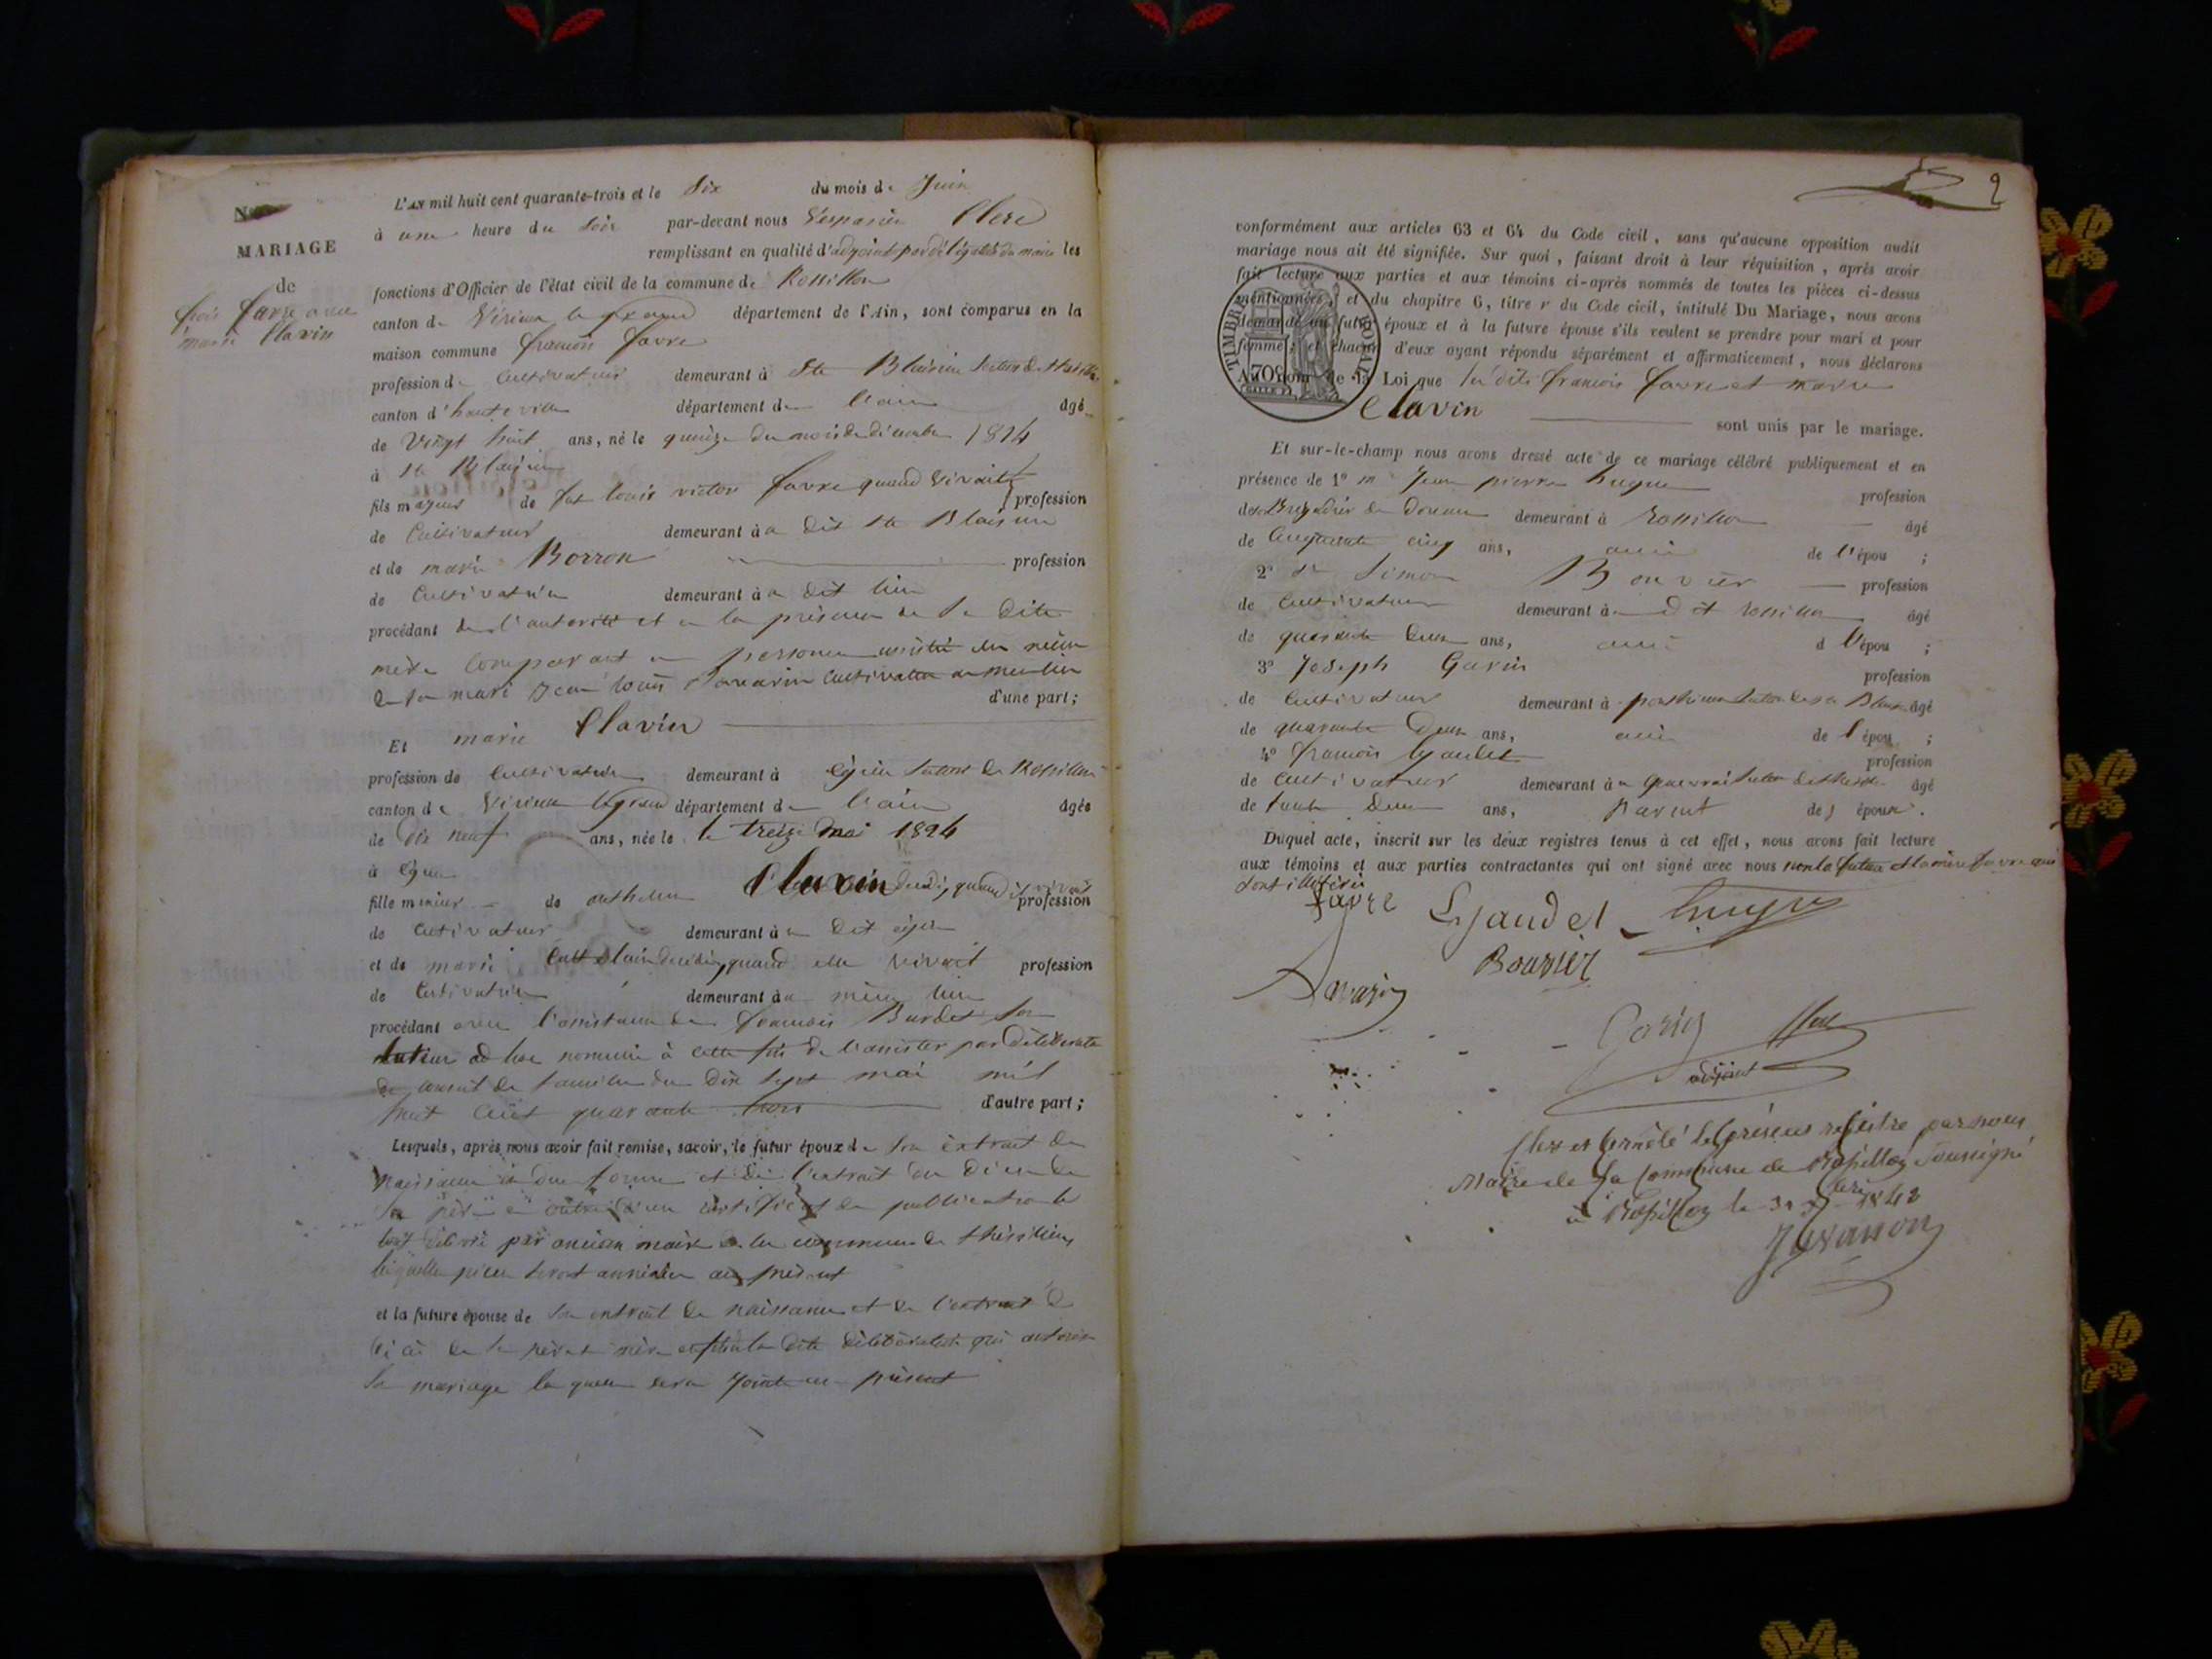 N°
MARIAGE
de
favre avec
marie Clavin
L'AN mil huit cent quarante-trois et le Six du mois de Juin
à une heure du Soir par-devant nous Vespasien Clerc
remplissant en qualité d'adjoint par délégation du maire les
fonctions d'Officier de l'état civil de la commune de Rossillon
canton de Virieu le grand département de l'Ain, sont comparus en la
maison commune françois favre
profession de Cultivateur demeurant à Ste Blaisine
canton d'hauteville département de l'ain âgé
de Vingt huit ans, né le quinze du mois de décembre 1814
à Ste Blaisine
fils majeur de feu louis victor favre quand vivait profession
de Cultivateur demeurant à a dit Ste Blaisine
et de marie Borron profession
de Cultivatrice demeurant à a dit lieu
procédant de l'autorité et en la présence de Sa Dite
mère Comparant en personne assistée du
de son mari Jean louis Cultivateur au même lieu
d'une part;
Et marie Clavin
profession de Cultivatrice demeurant à Egieu de Rossillon
canton de Virieu le grand département de l'ain âgée
de Dix neuf ans, née le le treize mai 1824
à Egieu
fille mineur de anthelme Clavin décédé, quand il vivait profession
de Cultivateur demeurant à a Dit egieu
et de marie décédée, quand elle vivait profession
de Cultivatrice demeurant à au même lieu
procédant avec l'assistance de françois Burdet son
tuteur ad hoc nommé à cette fin de l'assister par délibération
de conseil de famille du Dix Sept mai mil
huit Cent quarante trois d'autre part;
Lesquels, après nous avoir fait remise, savoir, le futur époux de Son extrait de
naissance en due forme et de l'extrait du décès de
Son père en outre d'un certificat de publication le
tout délivré par ancian maire de la commune de thézillieu
lesquelles pièces seront annexées au présent
et la future épouse de Son extrait de naissance et de l'extrait de
décès de Ses père et mère et de la dite délibération qui autorise
Son mariage laquelle sera jointe au présent
2
conformément aux articles 63 et 64 du Code civil, sans qu'aucune opposition audit
mariage nous ait été signifiée. Sur quoi, faisant droit à leur réquisition, après avoir
fait lecture aux parties et aux témoins ci-après nommés de toutes les pièces ci-dessus
mentionnées, et du chapitre 6, titre v du Code civil, intitulé Du Mariage, nous avons
demandé au futur époux et à la future épouse s'ils veulent se prendre pour mari et pour
femme; et chacun d'eux ayant répondu séparément et affirmativement, nous déclarons
TIMBRE ROYAL
70c
Au nom de la Loi que les dits françois favre et marie
Clavin sont unis par le mariage.
Et sur-le-champ nous avons dressé acte de ce mariage célébré publiquement et en
présence de 1° m. Jean pierre hugue profession
de Brigadier de Douane demeurant à rossillon âgé
de Cinquante cinq ans, ami de l'épou ;
2° Sr Simon Bouvier profession
de Cultivateur demeurant à a dit rossillon âgé
de quarante deux ans, ami d l'épou ;
3° Joseph Gavin profession
de Cultivateur demeurant à âgé
de quarante Deux ans, ami de l'épou ;
4° françois Lyaudet profession
de Cultivateur demeurant à âgé
de trente deux ans, parent des époux.
Duquel acte, inscrit sur les deux registres tenus à cet effet, nous avons fait lecture
aux témoins et aux parties contractantes qui ont signé avec nous non la future et la mère favre qui
sont illétérés
favre Lyaudet
Bouvier
adjoint
Clos et arrêté le présent registre par nous
Maire de la Commune de Rossillon Soussigné
à Rossillon le 31 1843